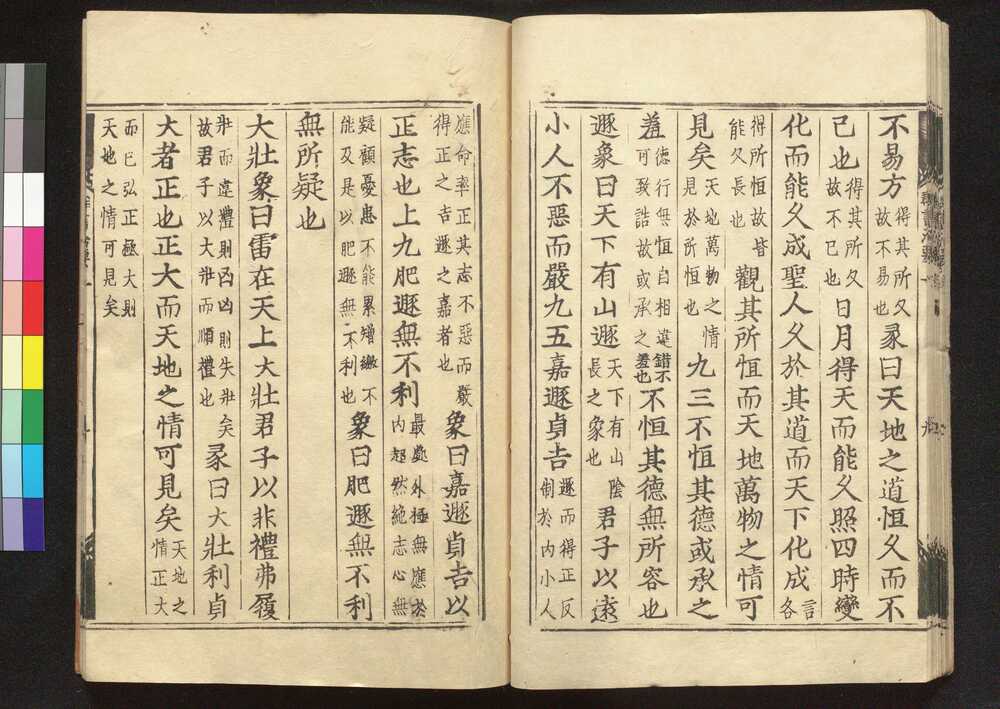 不易方得其所久故不易也彖曰天地之道恒久而不
已也得其所久故不已也日月得天而能久照四時變
化而能久成聖人久於其道而天下化成言各
得所恒故皆能久長也觀其所恒而天地萬物之情可
見矣天地萬物之情見於所恒也九三不恒其德或承之
羞德行無恒自相違錯不可致詰故或承之羞也不恒其德無所容也
遯象曰天下有山遯天下有山陰長之象也君子以遠
小人不惡而嚴九五嘉遯貞吉遯而得正反制於內小人
應命率正其志不惡而嚴得正之吉遯之嘉者也象曰嘉遯貞吉以
正志也上九肥遯無不利最處外極無應於內超然絶志心無
疑顧憂患不能累矰繳不能及是以肥遯無不利也象曰肥遯無不利
無所疑也
大壯象曰雷在天上大壯君子以非禮弗履
壯而違禮則凶凶則失壯矣故君子以大壯而順禮也彖曰大壯利貞
大者正也正大而天地之情可見矣天地之情正大
而已弘正極大則天地之情可見矣